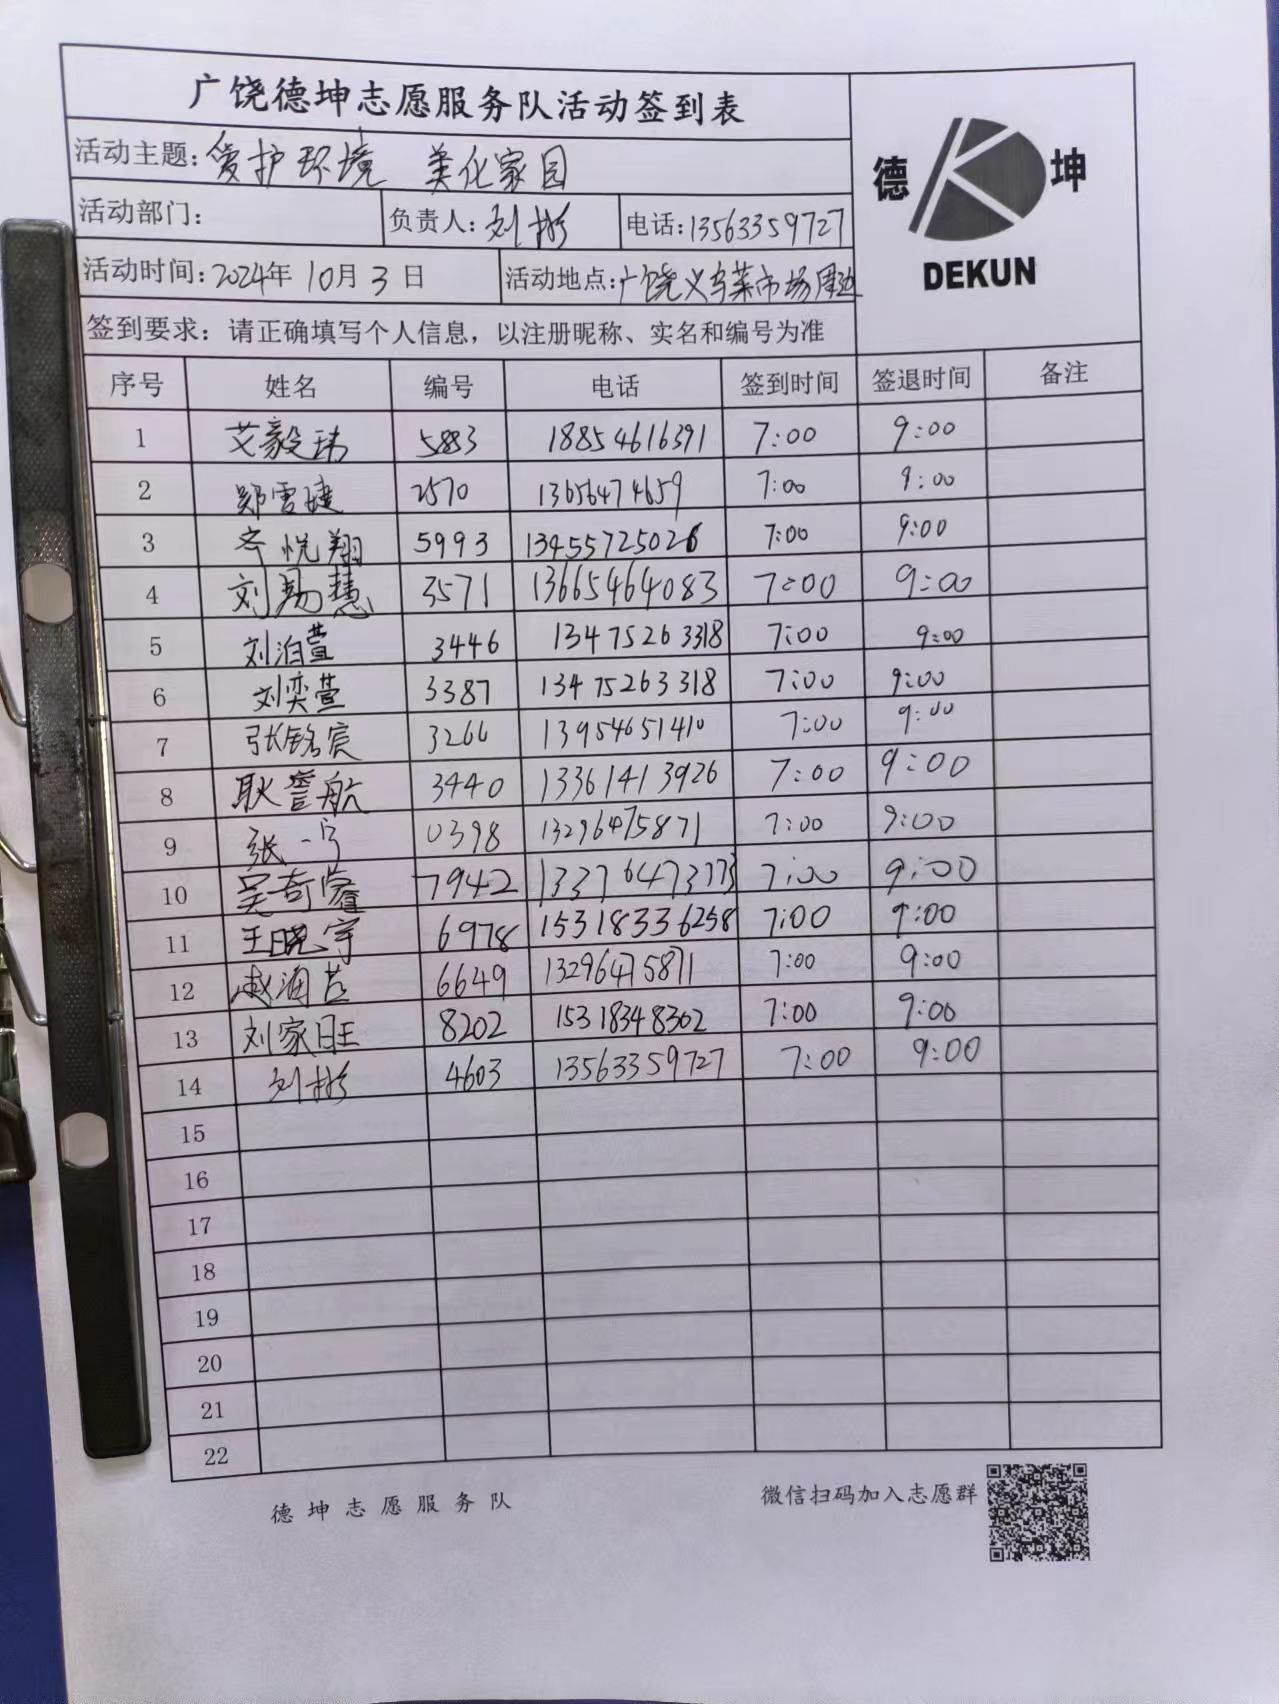 广饶德坤志愿服务队活动签到表
德 坤
DEKUN
活动主题：爱护环境 美化家园
活动部门： 负责人：刘彬 电话：13563359727
活动时间：2024年 10月 3 日 活动地点：广饶义乌菜市场周边
签到要求：请正确填写个人信息，以注册昵称、实名和编号为准
序号 姓名 编号 电话 签到时间 签退时间 备注
1 艾毅玮 5883 18854616391 7:00 9:00
2 郑雪婕 2570 13656474659 7:00 9:00
3 齐悦翔 5993 13455725026 7:00 9:00
4 刘易慧 3571 13665464083 7:00 9:00
5 刘泊萱 3446 13475263318 7:00 9:00
6 刘奕萱 3387 13475263318 7:00 9:00
7 张铭宸 3266 13954651410 7:00 9:00
8 耿誉航 3440 13361413926 7:00 9:00
9 张一 0398 13296475871 7:00 9:00
10 吴奇睿 7942 13376473773 7:00 9:00
11 王晓宇 6978 15318336258 7:00 9:00
12 6649 13296475871 7:00 9:00
13 刘家旺 8202 15318348302 7:00 9:00
14 刘彬 4603 13563359727 7:00 9:00
15
16
17
18
19
20
21
22
德坤志愿服务队 微信扫码加入志愿群